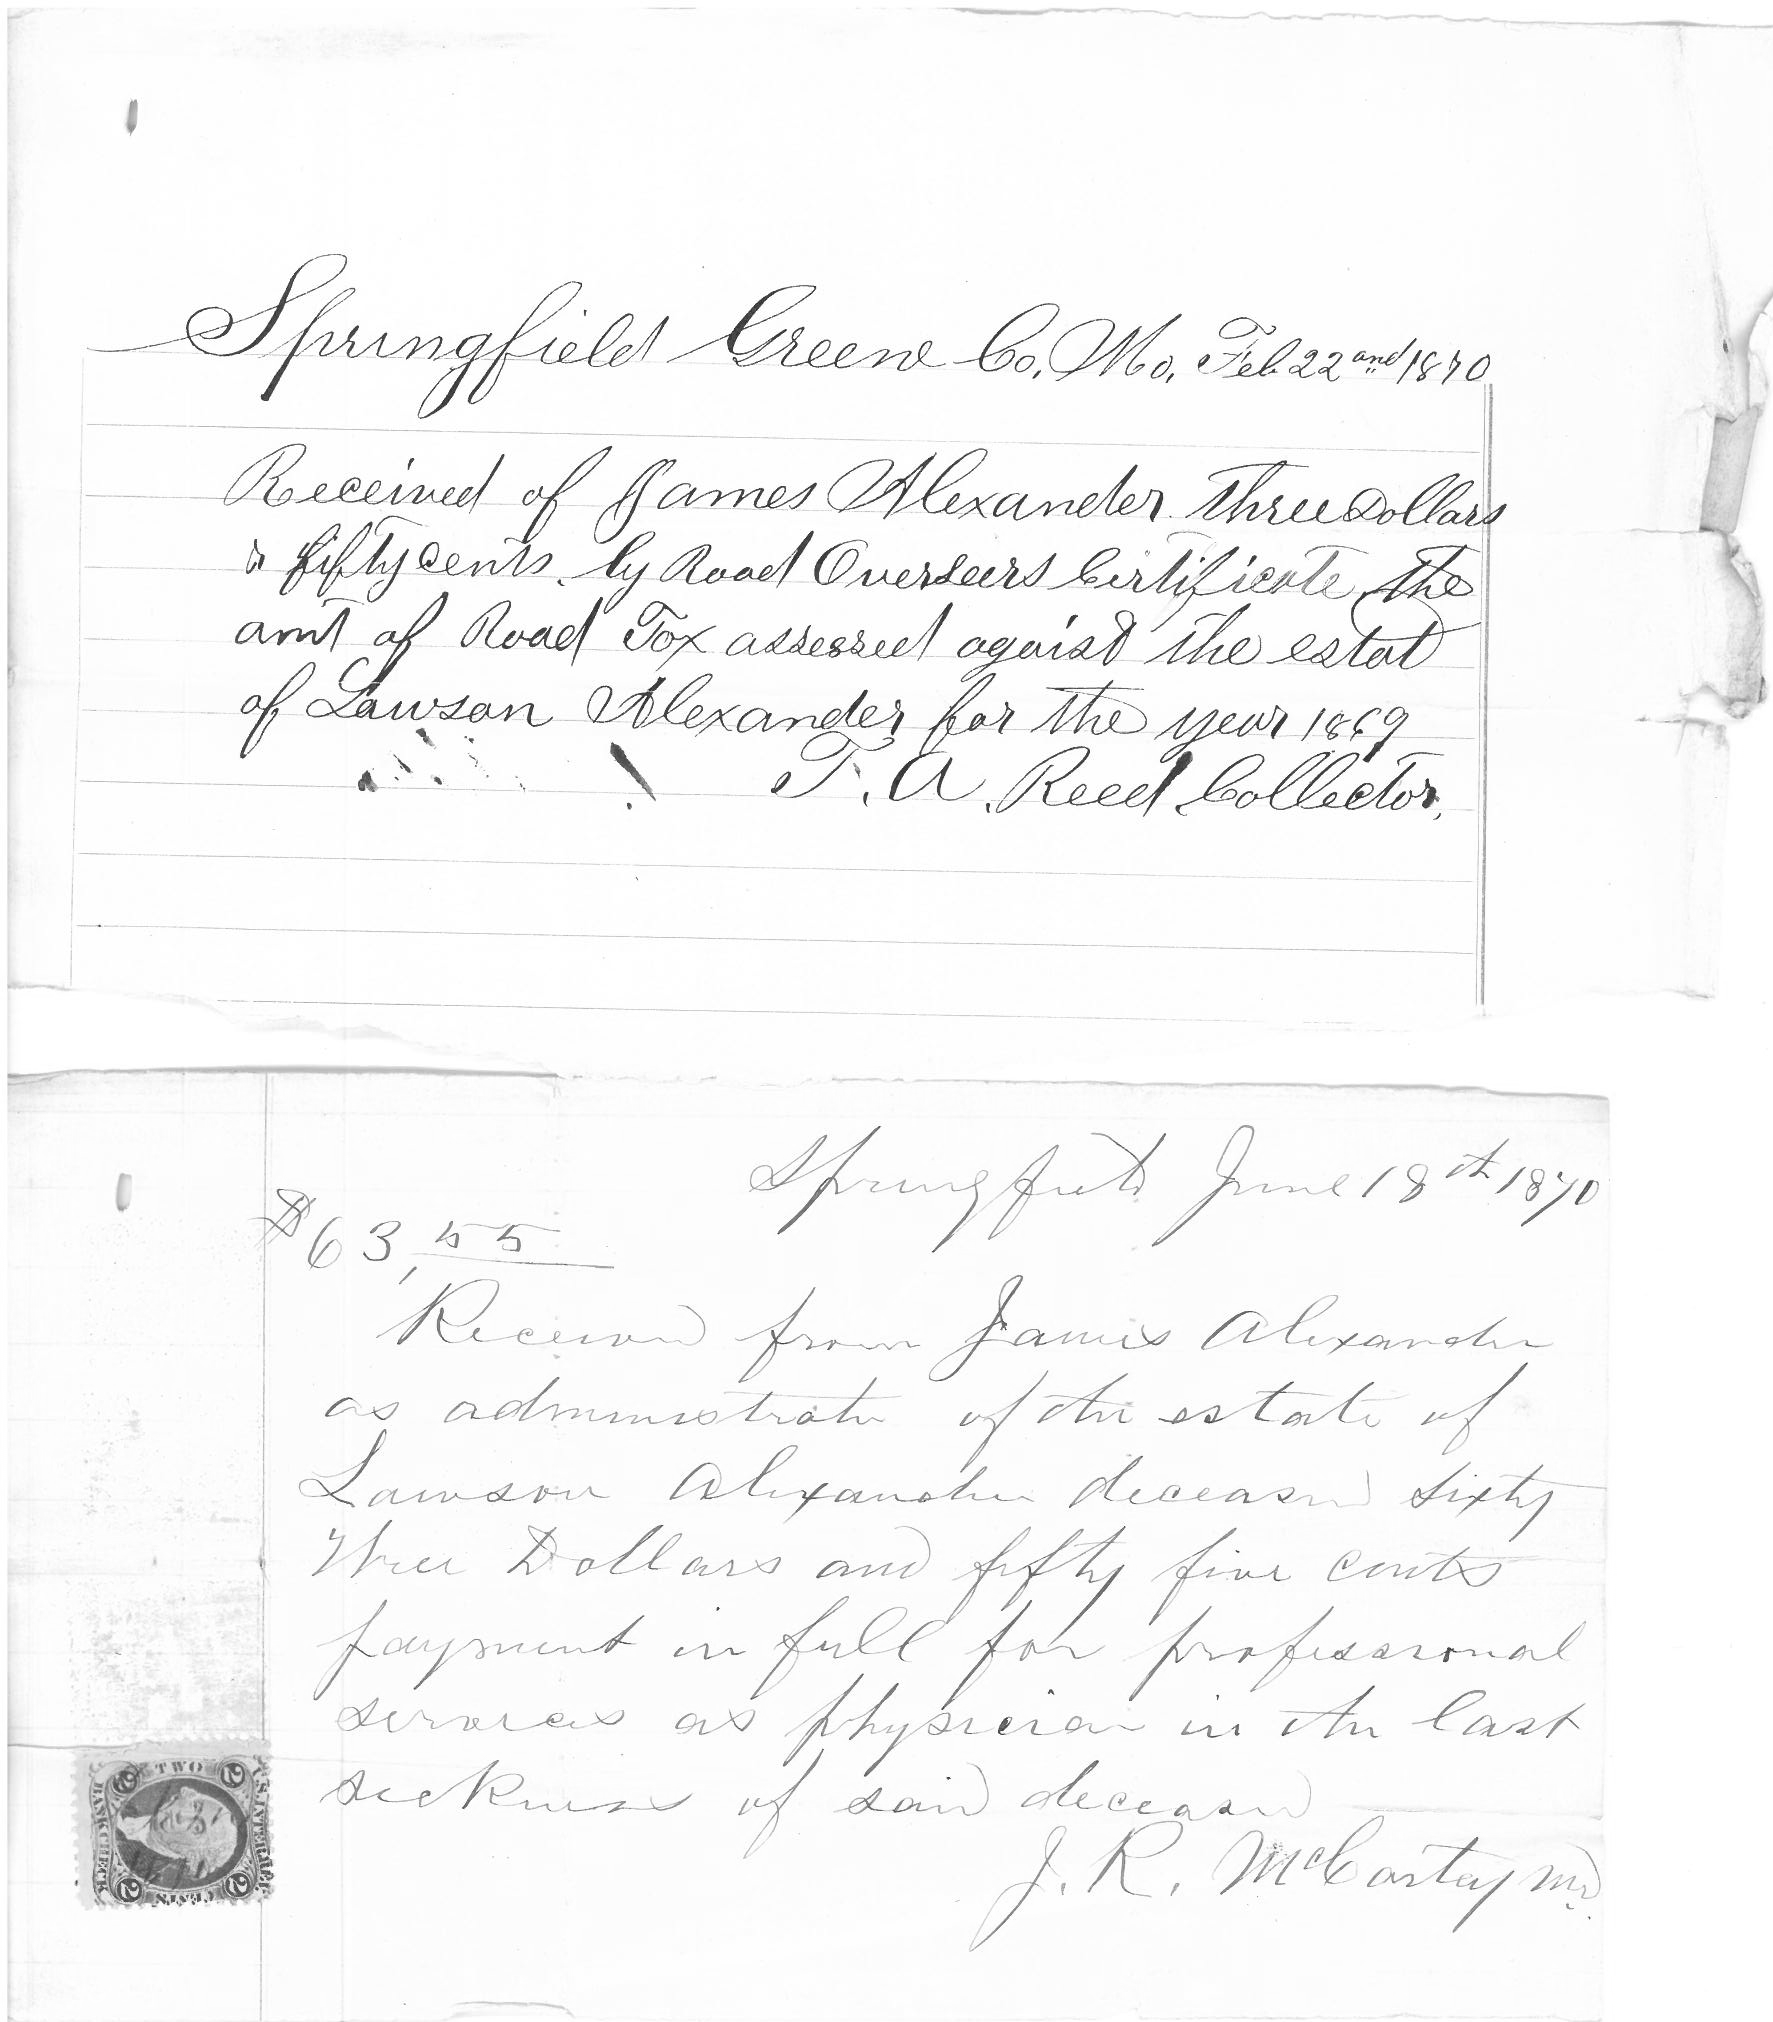 Springfield Greene Co, Mo, Feb 22 and 1870
Received of James Alexander Three Dollars
& fifty cents by Road Overseers Certificate, the
amt of Road Tax assessed agaist the estat
of Lawson Alexander for the year 1869
T. A. Reed Collector,
Springfield June 18th 1870
$63,55
Received from James Alexander
as administrator of the estate of
Lawson Alexander deceased sixty
three Dollars and fifty five cents
payment in full for professional
services as physician in the last
sickness of said deceased
J. R. McCartey MD.
TWO
U.S. INTER. REV.
BANK CHECK
CENTS
2
2
2
2